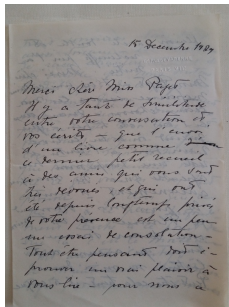 15 Décembre 1929
Merci chère Miss Paget
Il y a tant de similitude
entre votre conversation et
vos écrits — que l'envoi
d'un livre comme
ce dernier petit recueil
à des amis qui vous sont
très dévoués, et qui ont
été depuis longtemps privés
de votre présence est un peu
un essai de consolation —
Tout être pensant doit é-
prouver un vrai plaisir à
vous lire — pour nous